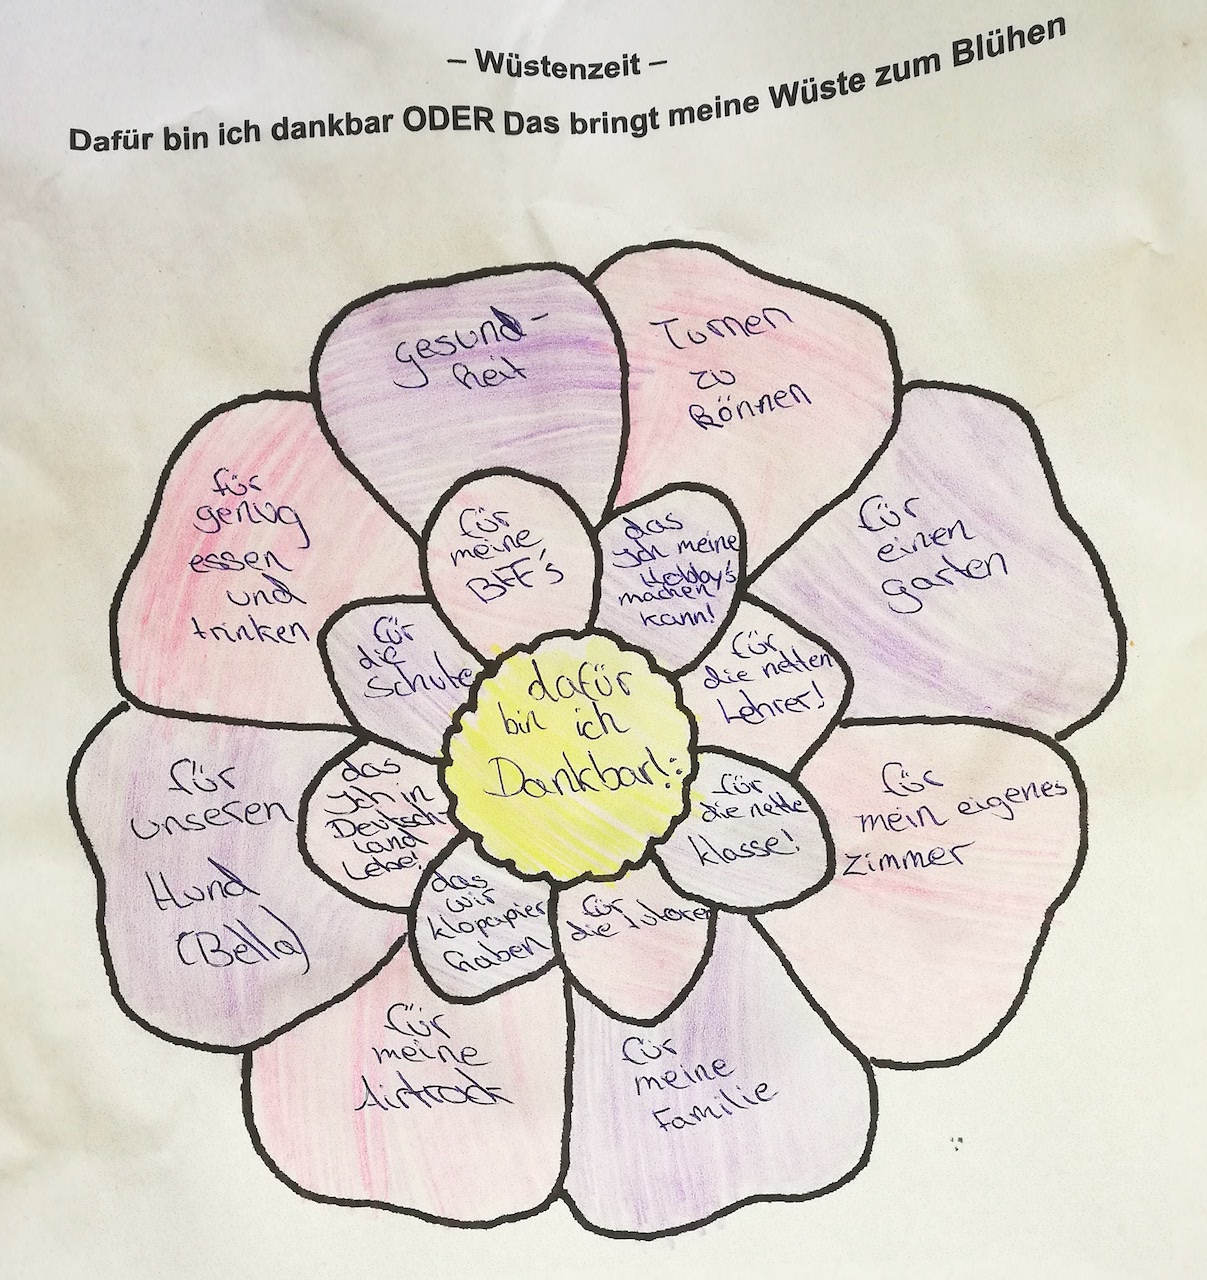 – Wüstenzeit –
Dafür bin ich dankbar ODER Das bringt meine Wüste zum Blühen
gesund-
heit
Turnen
zu
können
für
einen
garten
für
mein eigenes
zimmer
für
meine
Familie
für
meine
Airtrack
für
unseren
Hund
(Bella)
für
genug
essen
und
trinken
für
meine
BFF's
das
Ich meine
Hobby's
machen
kann!
für
die netten
Lehrer!
für
die nette
klasse!
für
die
das
wir
klopapier
haben
das
Ich in
Deutsch-
land
Lebe!
für
die
Schule
dafür
bin ich
Dankbar!: